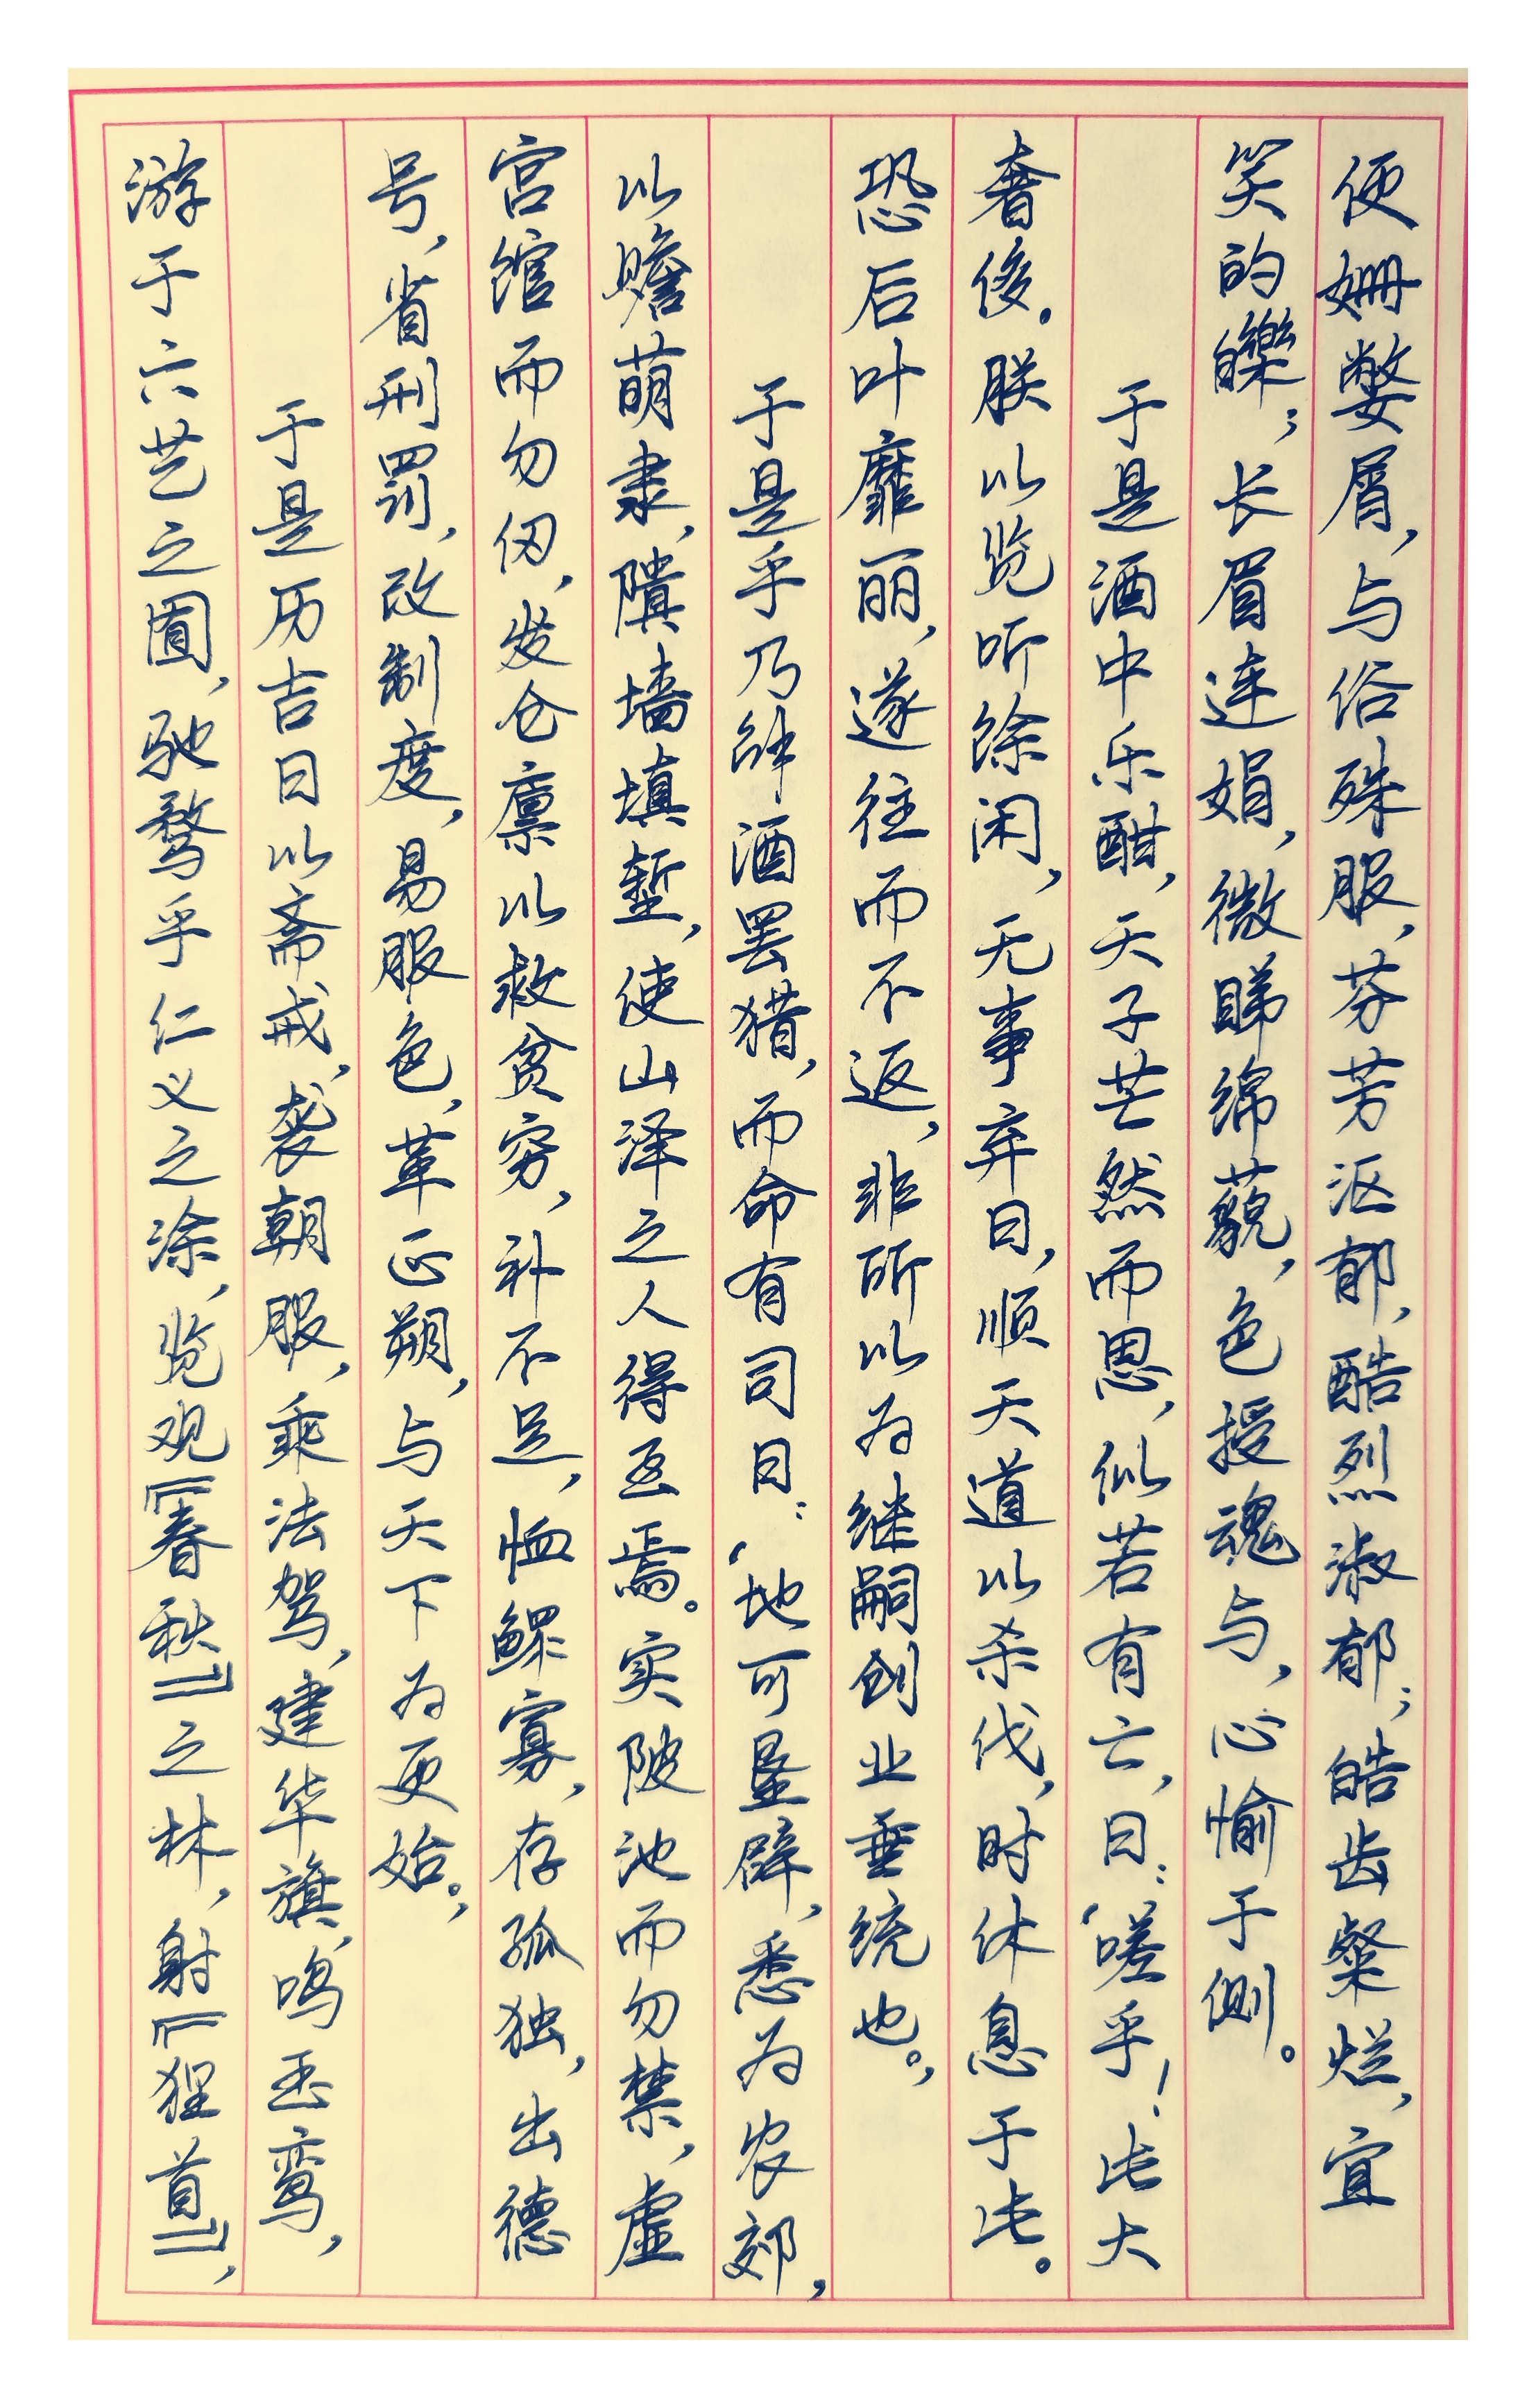 便姗嫳屑，与俗殊服，芬芳沤郁，酷烈淑郁；皓齿粲烂，宜
笑的皪；长眉连娟，微睇绵藐，色授魂与，心愉于侧。
于是酒中乐酣，天子芒然而思，似若有亡，曰：‘嗟乎！此大
奢侈。朕以览听馀闲，无事弃日，顺天道以杀伐，时休息于此。
恐后叶靡丽，遂往而不返，非所以为继嗣创业垂统也。’
于是乎乃解酒罢猎，而命有司曰：‘地可垦辟，悉为农郊，
以赡萌隶，隤墙填堑，使山泽之人得至焉。实陂池而勿禁，虚
宫馆而勿仞，发仓廪以救贫穷，补不足，恤鳏寡，存孤独，出德
号，省刑罚，改制度，易服色，革正朔，与天下为更始。’
于是历吉日以斋戒，袭朝服，乘法驾，建华旗，鸣玉鸾，
游于六艺之囿，驰骛乎仁义之涂，览观《春秋》之林，射《狸首》，